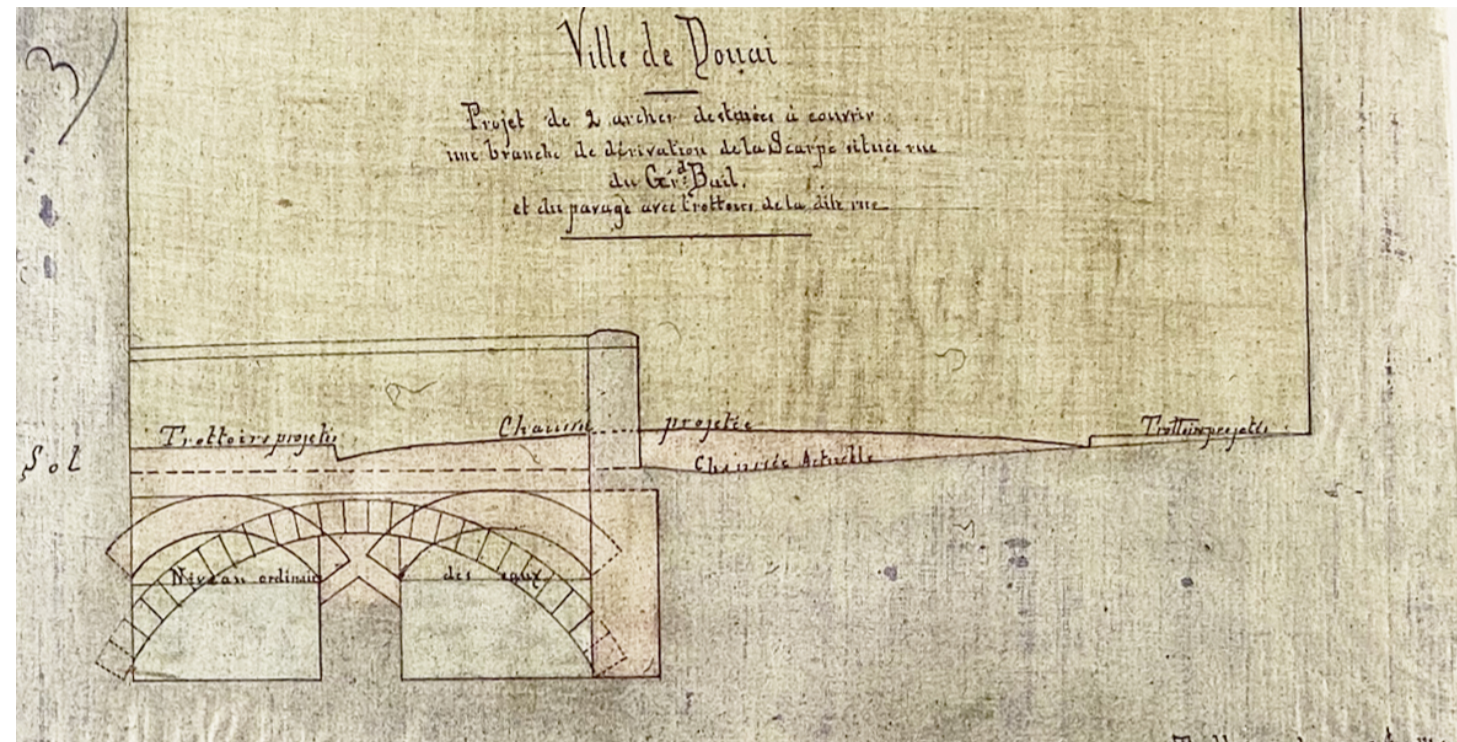 3
Ville de Douai
Projet de 2 arches destinées à couvrir
une branche de dérivation de la Scarpe située rue
du Grd Bail.
et du pavage avec trottoirs de la dite rue
Trottoirs projetés
Chaussée projetée
Trottoirs projetés
Sol
Chaussée Actuelle
Niveau ordinaire des eaux